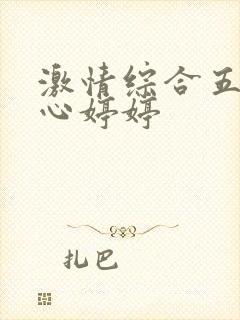 激情综合五
心婷婷
扎巴